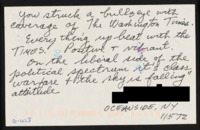 You struck a bullseye with
coverage of The Washington Times.
Everything up beat with the
TIMES. Positive + vibrant.
On the liberal side of the
political spectrum it's class
warfare + "the sky is falling"
attitude.
OCEANSIDE, NY
11572